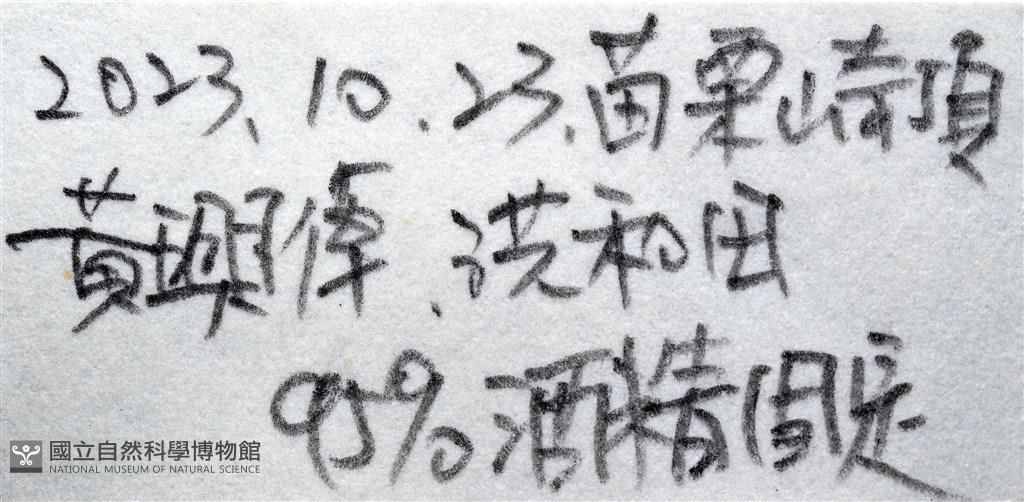 2023.10.23.苗栗崎頂
黃興偉、洪和田
95%酒精固定
國立自然科學博物館
NATIONAL MUSEUM OF NATURAL SCIENCE